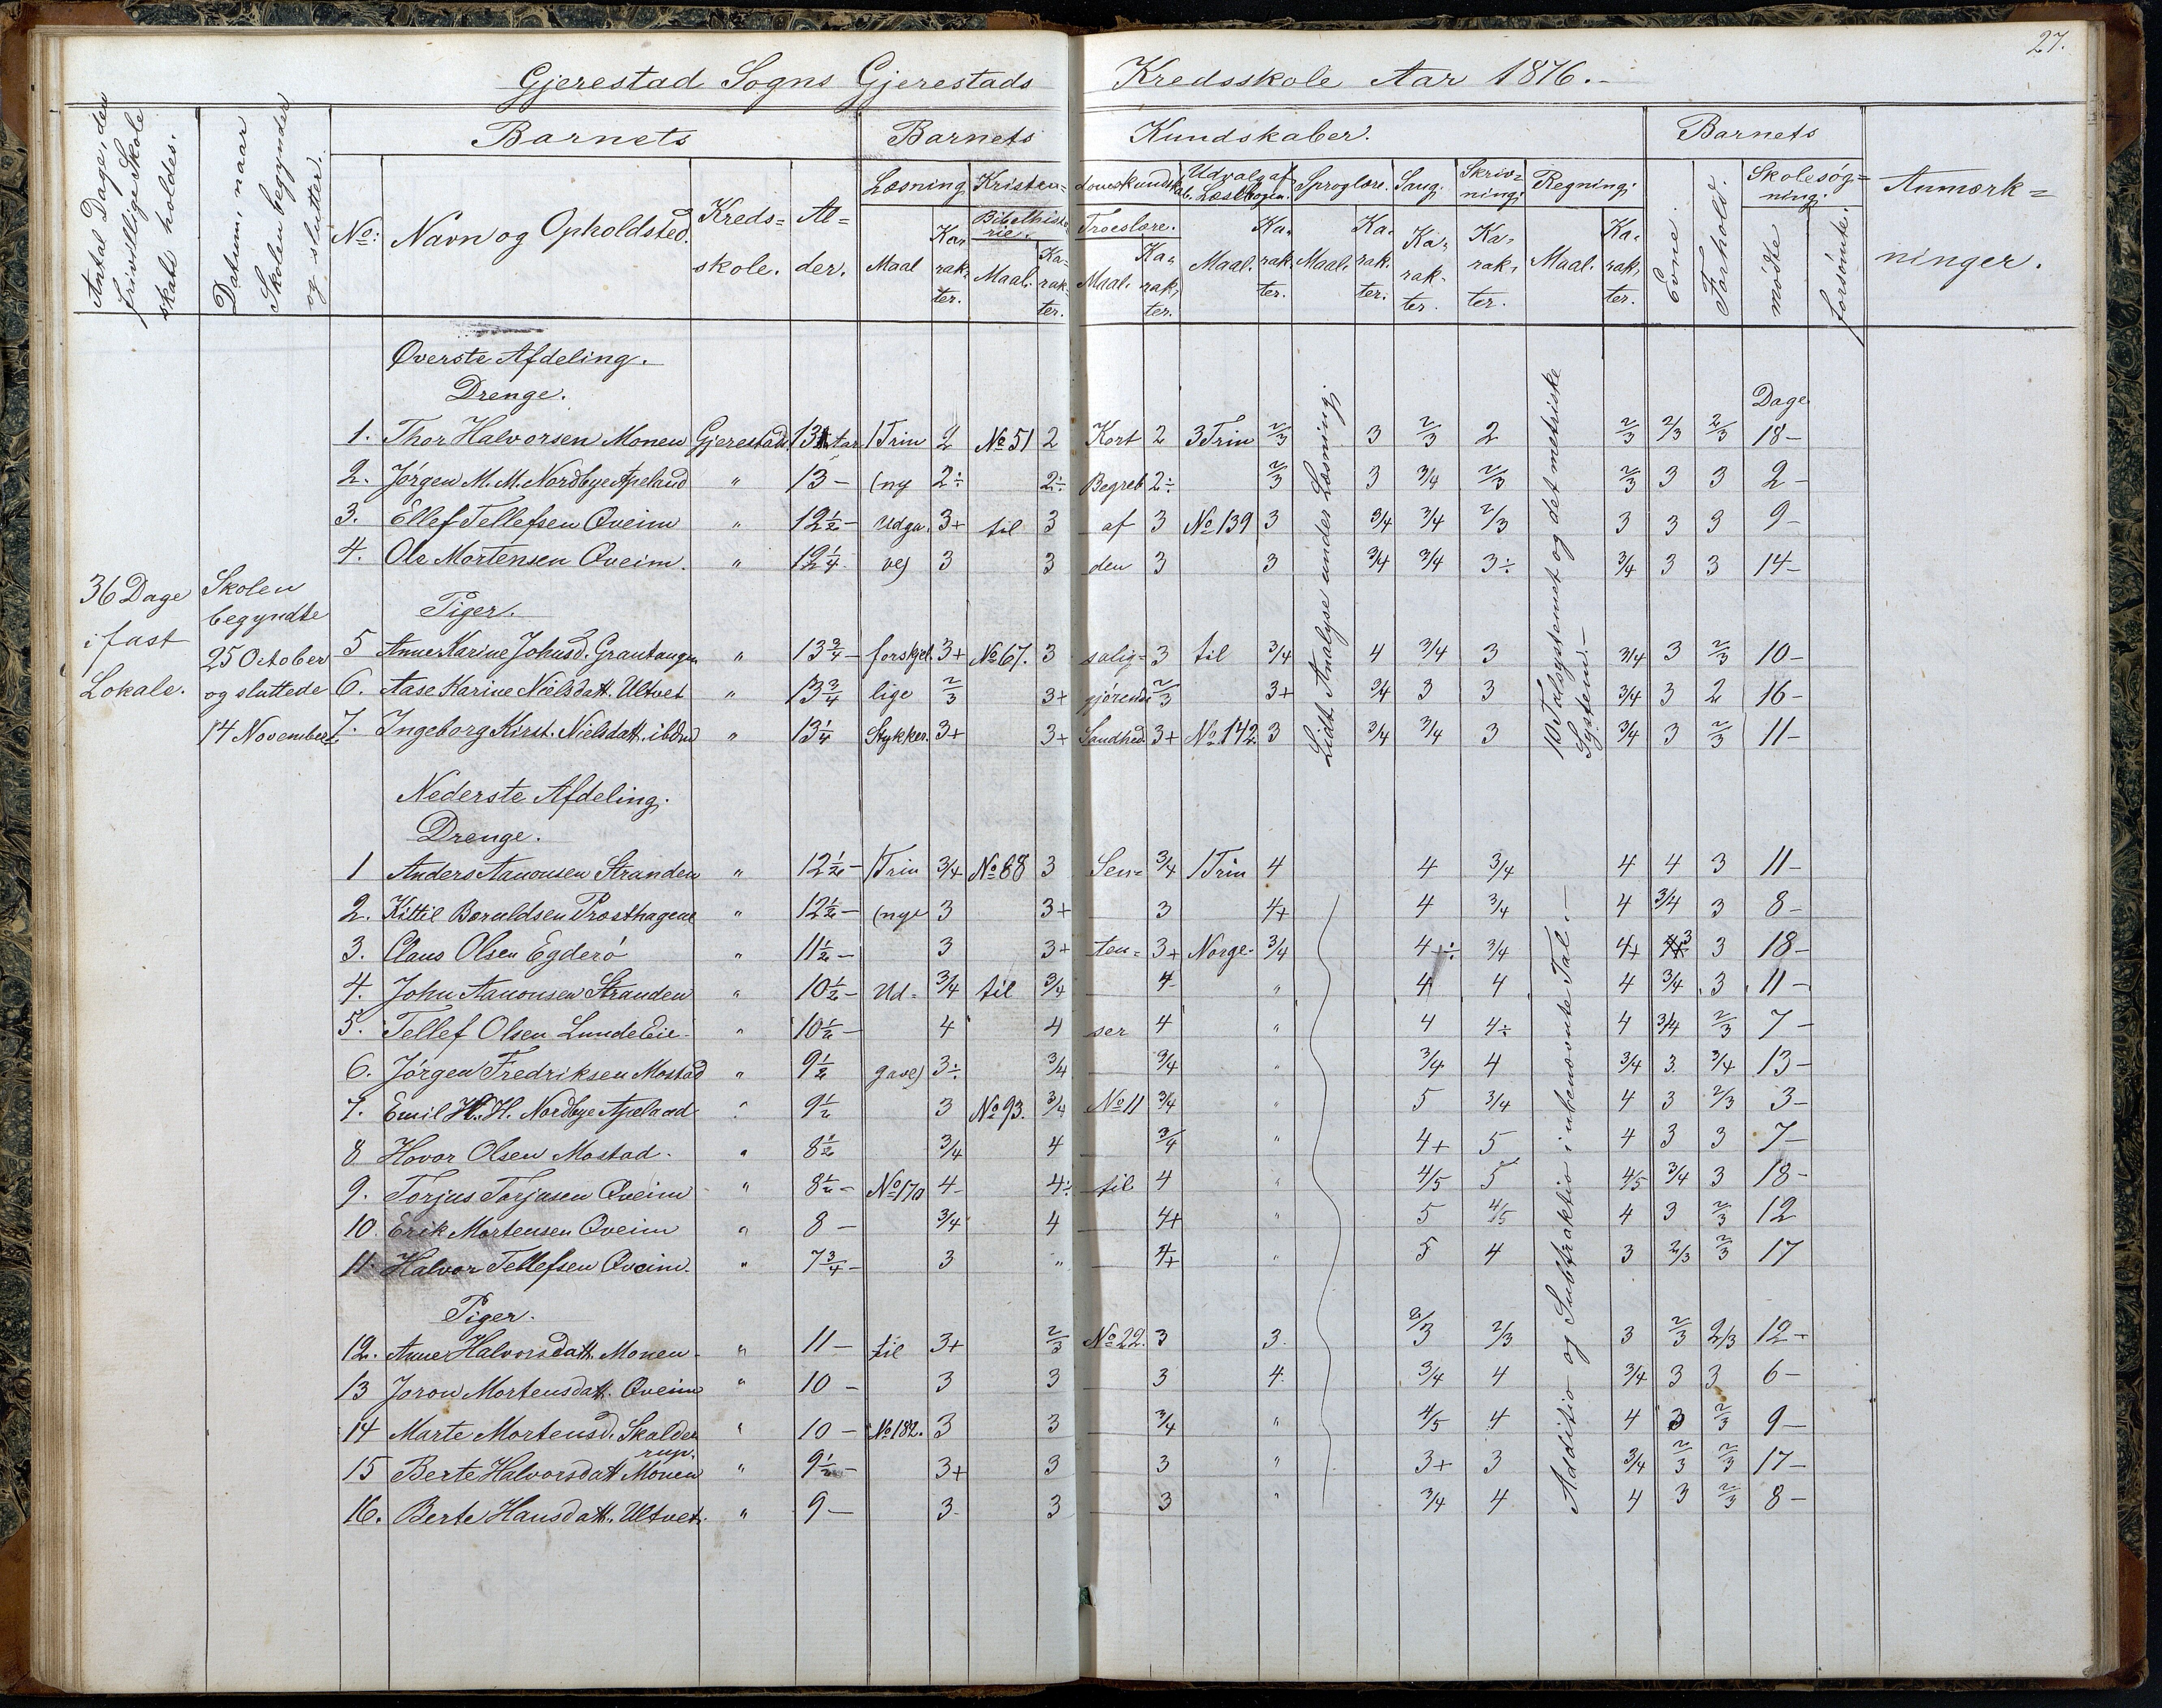 27.
Gjerestad Sogns Gjerestads Kredsskole Aar 1876.-
Antal Dage, den frivillige Skole skal holdes.
Datum, naar Skolen begynder og slutter.
Barnets
Barnets Kundskaber.
Barnets
Anmærk=
ninger.
No: Navn og Opholdsted. Kreds= skole. Al= der.
Læsning Kristen= domskundskab. Udvalg af Læsebogen. Sproglære. Sang. Skriv= ning. Regning. Evne. Forhold. Skolesøg= ning.
Bibelhisto rie. Troeslære.
Maal Ka rak ter. Maal. Ka= rak= ter. Maal. Ka= rak= ter. Maal. Ka, rak, ter. Maal. Ka, rak. ter. Ka, rak- ter. Ka, rak, ter. Maal. Ka, rak, ter. mødte forsømte.
Øverste Afdeling.
Drenge.
Dage
1. Thor Halvorsen Monen Gjerestads 13 Aar 1 Trin 2 No 51 2 Kort 2 3 Trin 2/3 3 2/3 2 2/3 2/3 2/3 18-
2. Jørgen M. M. Nordbye Apeland " 13- (ny 2÷ 2÷ Begreb 2÷ 2/3 3 3/4 2/3 2/3 3 3 2-
3. Ellef Tellefsen Qveim " 12½- Udga. 3+ til 3 af 3 No 139 3 3/4 3/4 2/3 3 3 3 9-
4. Ole Mortensen Qveim. " 12¼ ve) 3 3 den 3 3 3/4 3/4 3÷ 3/4 3 3 14-
Lidt Analyse under Læsning
10 Talsystemet og det metriske System.-
36 Dage
i fast
Lokale.
Skolen
begyndte
25 October
og sluttede
14 November
Piger.
5 Anne Karine Johnsd. Grautangen " 13¾- forskjel. 3+ No 67. 3 salig= 3 til 3/4 4 3/4 3 3/4 3 2/3 10-
6. Aase Karine Nielsdatt. Ultvet " 13¾ lige 2/3 3+ gjørende 2/3 3+ 3/4 3 3 3/4 3 2 16-
7. Ingeborg Kirst. Nielsdatt. ibdm " 13¼ Stykker. 3+ 3+ Sandhed. 3+ No 142. 3 3/4 3/4 3 3/4 3 2/3 11-
Nederste Afdeling.
Drenge.
1 Anders Aanonsen Stranden " 12½- 1 Trin 3/4 No 68 3 Sen= 3/4 1 Trin 4 4 3/4 4 4 3 11-
2. Kittil Boruldsen Prosthagene " 12½- (nye 3 3+ 3 4+ 4 3/4 4 3/4 3 8-
3. Claus Olsen Egderø " 11½- 3 3+ ten= 3+ Norge- 3/4 4+÷ 3/4 4+ 3 3 18-
4. John Aanonsen Stranden " 10½- Ud= 3/4 til 3/4 4 " 4 4 4 3/4 3 11-
5. Tellef Olsen Lunde Eie. " 10½- 4 4 ser 4 " 4 4÷ 4 3/4 2/3 7-
6. Jørgen Fredriksen Mostad " 9½ gave) 3÷ 3/4 3/4 " 3/4 4 3/4 3. 3/4 13-
7. Emil H. H. Nordbye Apeland " 9½ 3 No 93. 3/4 No 11 3/4 " 5 3/4 4 3 2/3 3-
8 Hovor Olsen Mostad. " 8½ 3/4 4 3/4 " 4+ 5 4 3 3 7-
9. Torjus Torjusen Qveim " 8½- No 170 4- 4÷ til 4 " 4/5 5 4/5 3/4 3 18-
10. Erik Mortensen Qveim " 8- 3/4 4 4+ " 5 4/5 4 3 2/3 12
11. Halvor Tellefsen Qveim. " 7¾- 3 " 4+ " 5 4 3 2/3 2/3 17
Additio og Subtraktio i ubenævnte Tal.-
Piger.
12. Anne Halvorsdatt. Monen- " 11- til 3+ 2/3 No 22. 3 3. 2/3 2/3 3 2/3 2/3 12-
13 Joron Mortensdatt. Qveim " 10- 3 3 3 4. 3/4 4 3/4 3 3 6-
14 Marte Mortensd. Skalder " 10- No 182. 3 3 3/4 " 4/5 4 4 3 2/3 9-
rup.
15 Berte Halvorsdatt Monen " 9½- 3+ 3 3 " 3+ 3 3/4 2/3 2/3 17-
16. Berte Hansdatt. Ultvet. " 9- 3- 3 3 " 3/4 4 4 3 2/3 8-